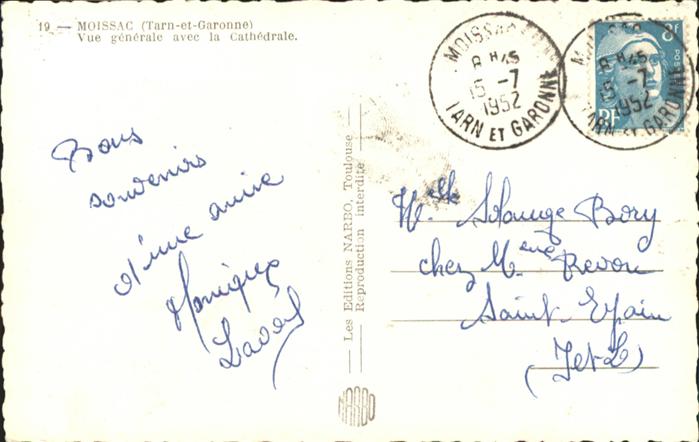 19 — MOISSAC (Tarn-et-Garonne)
Vue générale avec la Cathédrale.
Bons
souvenirs
d'une amie
Monique
— Les Editions NARBO, Toulouse —
Reproduction interdite
NARBO
MOISSAC
8 H 45
15 -7
1952
TARN ET GARONNE
8F
POSTES
RF
MOISSAC
8 H 45
15 -7
1952
TARN ET GARONNE
Melle Solange Bory
chez Mme Revon
Saint-Epain
(I et L)